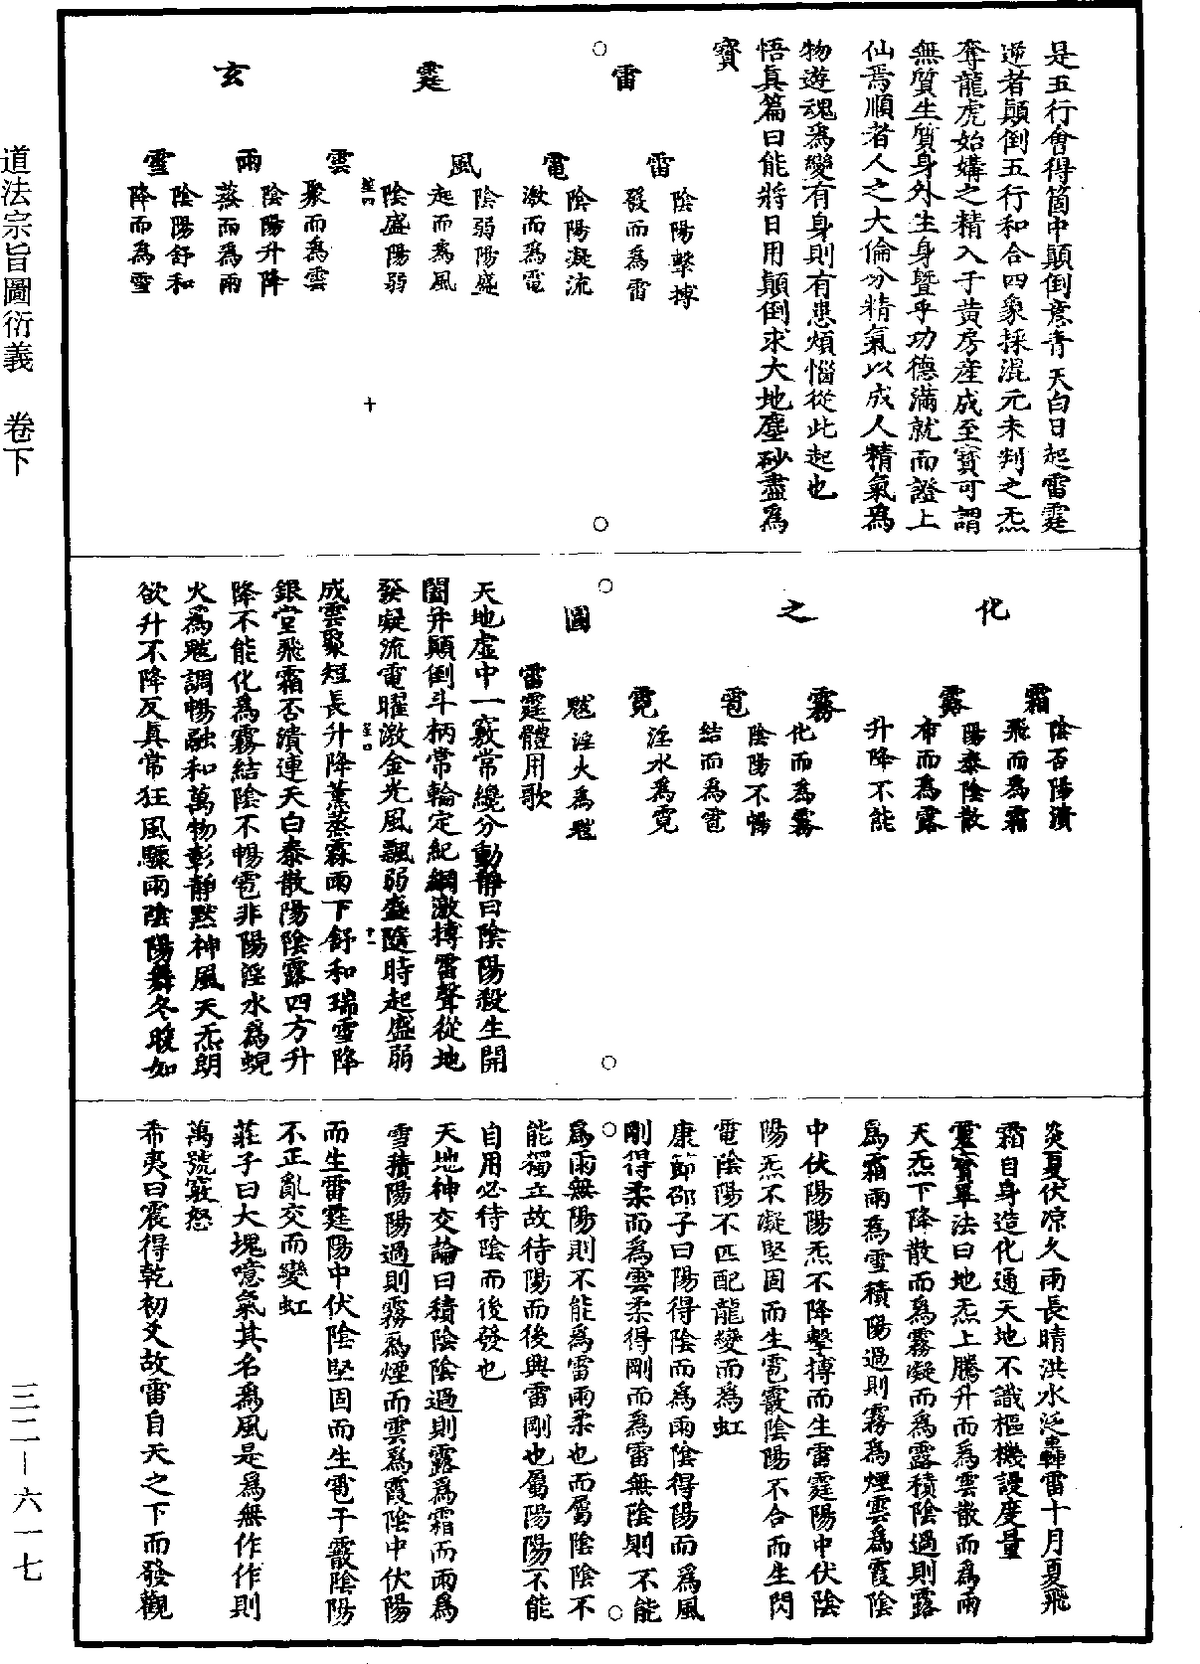 是五行會得箇中顛倒意青天白日起雷霆
逆者顛倒五行和合四象採混元未判之炁
奪龍虎始媾之精入于黃房產成至寶可謂
無質生質身外生身暨乎功德滿就而證上
仙焉順者人之大倫分精氣以成人精氣爲
物遊魂爲變有身則有患煩惱從此起也
悟真篇曰能將日用顛倒求大地塵砂盡爲
寶
雷
霆
玄
雷
陰陽擊搏
發而爲雷
電
陰陽凝流
激而爲電
風
陰弱陽盛
起而爲風
陰盛陽弱
雲
聚而爲雲
雨
陰陽升降
蒸而爲雨
雪
陰陽舒和
降而爲雪
十
化
之
圖
霜
陰否陽潰
飛而爲霜
露
陽泰陰散
布而爲露
霧
升降不能
化而爲霧
雹
陰陽不暢
結而爲雹
霓
淫水爲霓
魃
淫火爲魃
雷霆體用歌
天地虛中一竅常纔分動靜曰陰陽殺生開
闔并顛倒斗柄常輪定紀綱激搏雷聲從地
發凝流電曜激金光風飄弱盛隨時起盛弱
十一
成雲聚短長升降薰蒸霖雨下舒和瑞雪降
銀堂飛霜否潰連天白泰散陽陰露四方升
降不能化爲霧結陰不暢雹非陽淫水爲蜺
火爲魃調暢融和萬物彰靜默神風天炁朗
欲升不降反真常狂風驟雨陰陽舞冬暖如
炎夏伏凉久雨長晴洪水泛轟雷十月夏飛
霜自身造化通天地不識樞機謾度量
靈寶畢法曰地炁上騰升而爲雲散而爲雨
天炁下降散而爲霧凝而爲露積陰過則露
爲霜雨爲雪積陽過則霧爲煙雲爲霞陰
中伏陽陽炁不降擊搏而生雷霆陽中伏陰
陽炁不凝堅固而生雹霰陰陽不合而生閃
電陰陽不匹配龍變而爲虹
康節邵子曰陽得陰而爲雨陰得陽而爲風
剛得柔而爲雲柔得剛而爲雷無陰則不能
爲雨無陽則不能爲雷雨柔也而屬陰陰不
能獨立故待陽而後興雷剛也屬陽陽不能
自用必待陰而後發也
天地神交論曰積陰陰過則露爲霜而雨爲
雪積陽陽過則霧爲煙而雲爲霞陰中伏陽
而生雷霆陽中伏陰堅固而生雹于霰陰陽
不正亂交而變虹
莊子曰大塊噫氣其名爲風是爲無作作則
萬號竅怒
希夷曰震得乾初爻故雷自天之下而發觀
道法宗旨圖衍義　卷下
三二—六一七